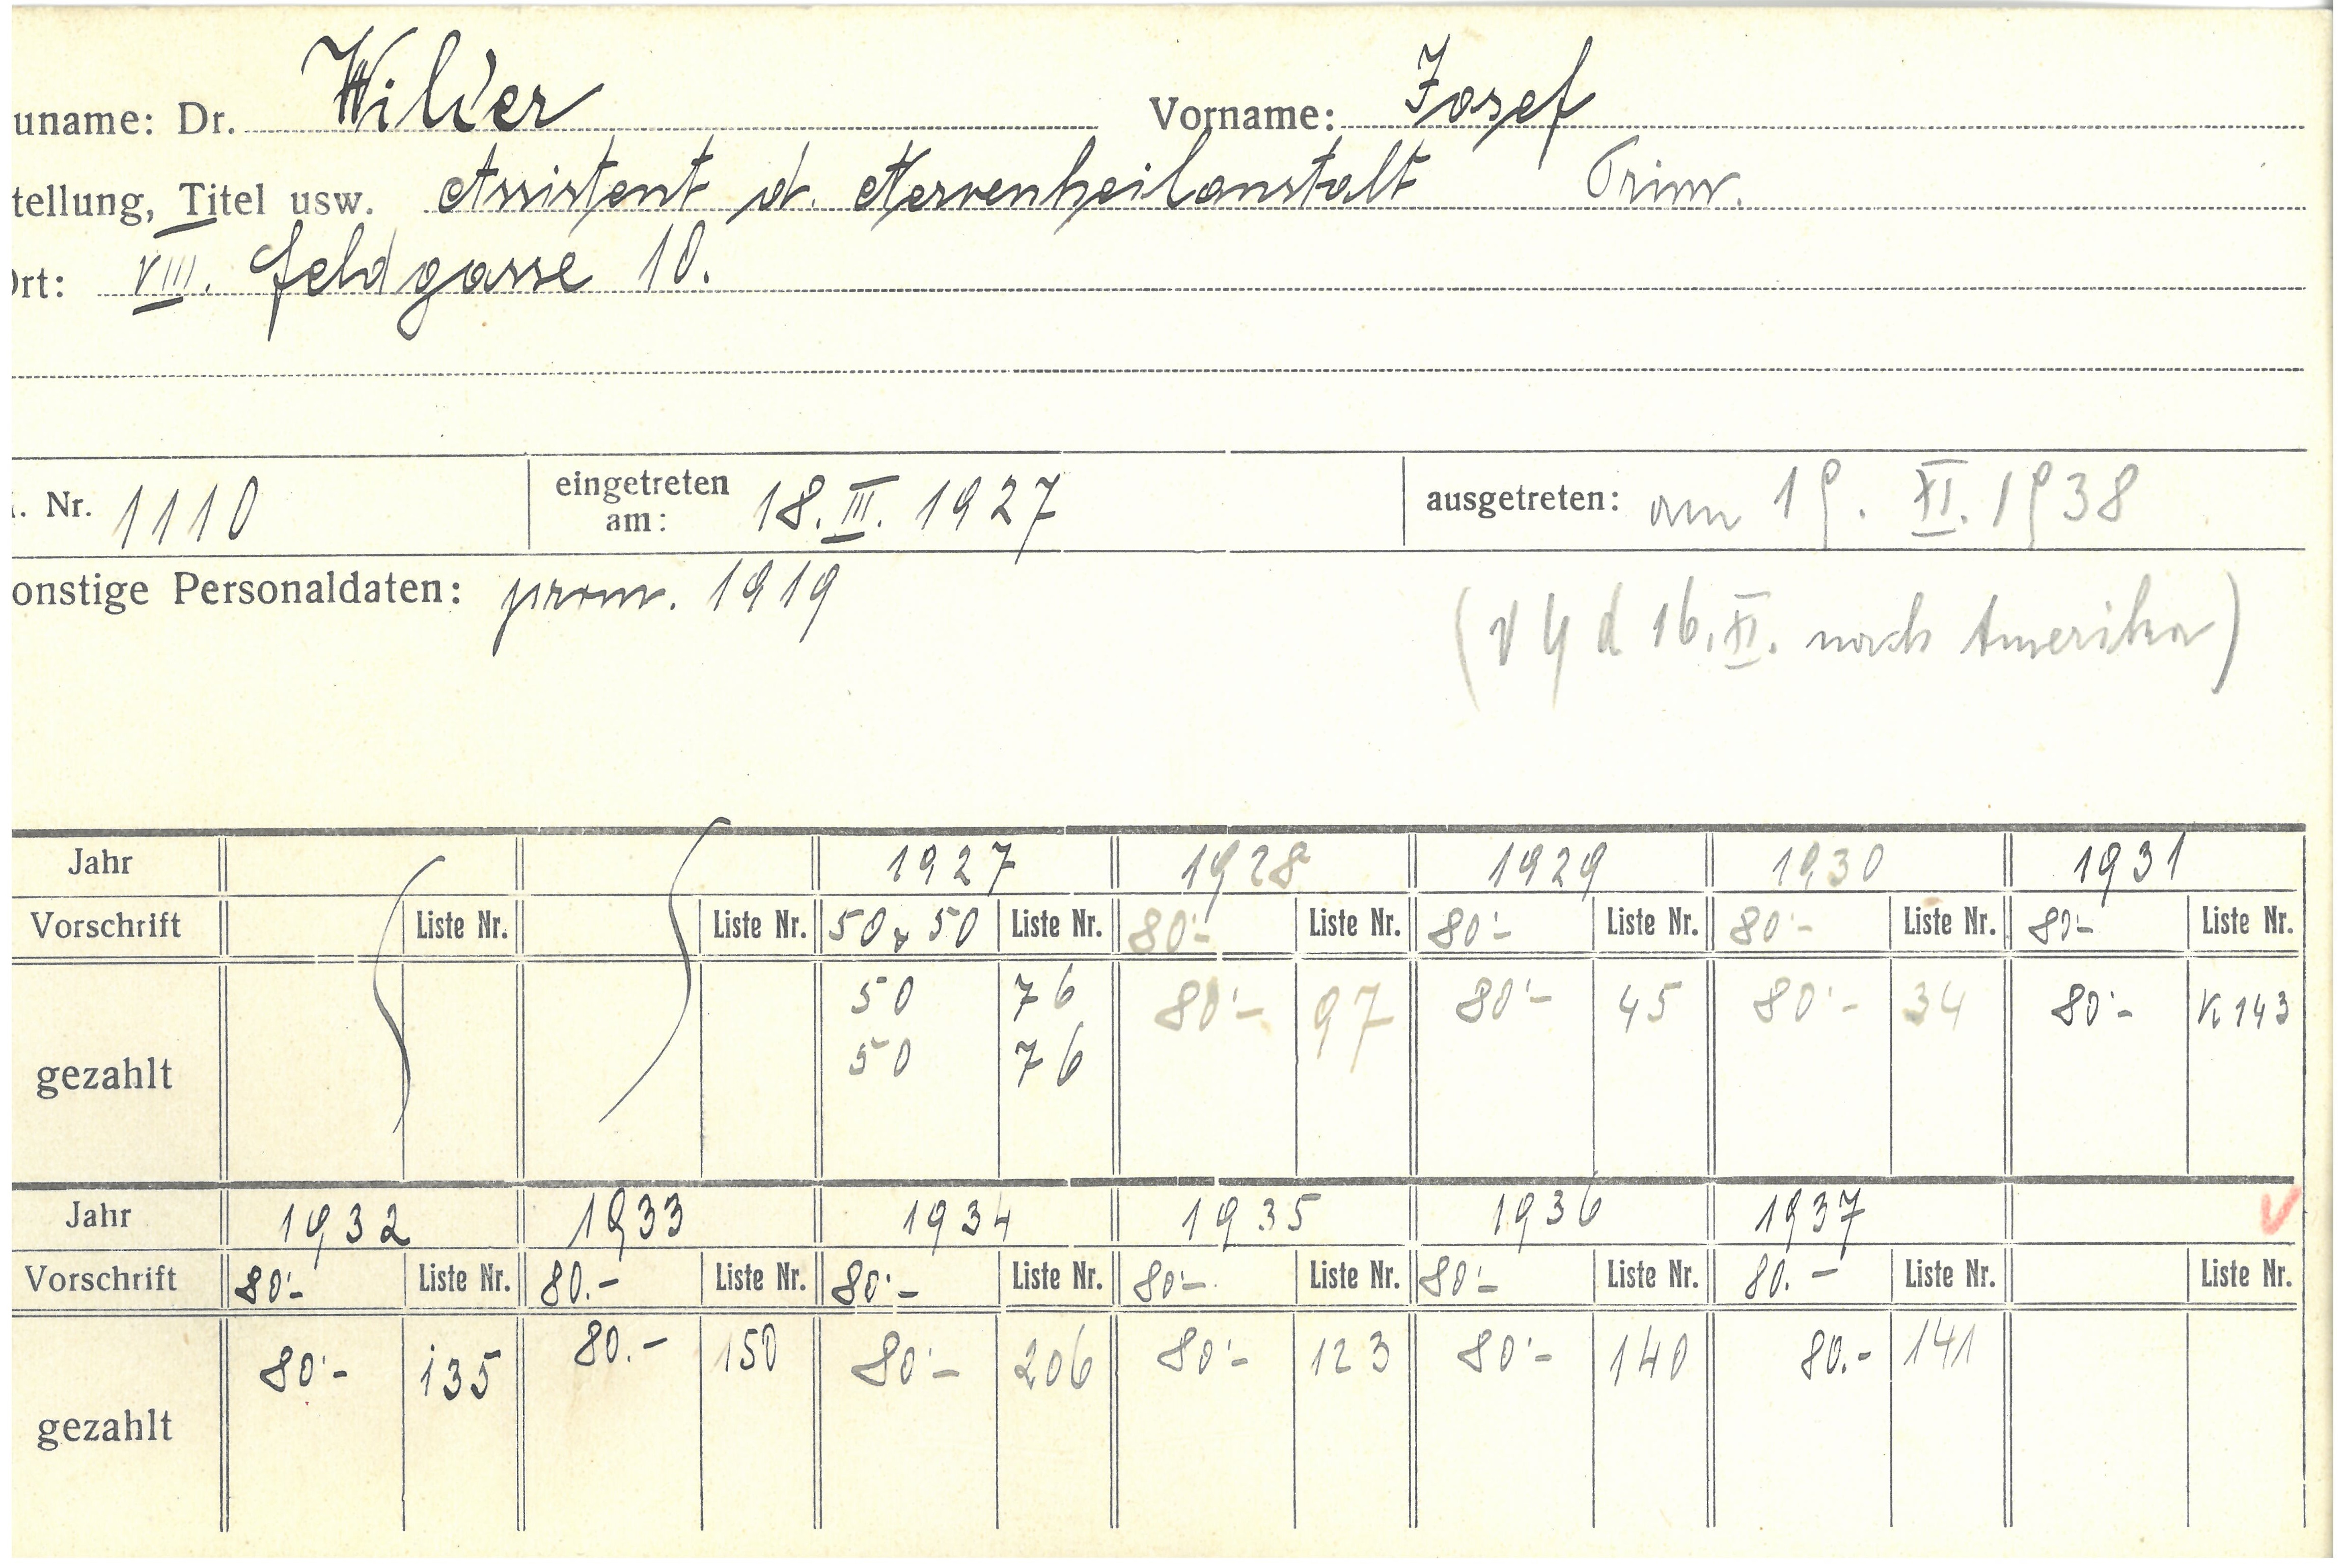 uname: Dr. Wilder Vorname: Josef
tellung, Titel usw. Assistent d. Nervenheilanstalt Prim.
Ort: VIII. Feldgasse 10.
. Nr. 1110 eingetreten am: 18. III. 1927 ausgetreten: am 19. XI. 1938
onstige Personaldaten: prom. 1919
d 16. XI. nach Amerika)
Jahr 1927 1928 1929 1930 1931
Vorschrift Liste Nr. Liste Nr. 50 + 50 Liste Nr. 80'- Liste Nr. 80'- Liste Nr. 80'- Liste Nr. 80'- Liste Nr.
50 76 80'- 97 80'- 45 80'- 34 80'- K 143
50 76
gezahlt
Jahr 1932 1933 1934 1935 1936 1937 V
Vorschrift 80'- Liste Nr. 80.- Liste Nr. 80'- Liste Nr. 80'- Liste Nr. 80'- Liste Nr. 80.- Liste Nr. Liste Nr.
80'- 135 80.- 150 80'- 206 80'- 123 80'- 140 80.- 141
gezahlt